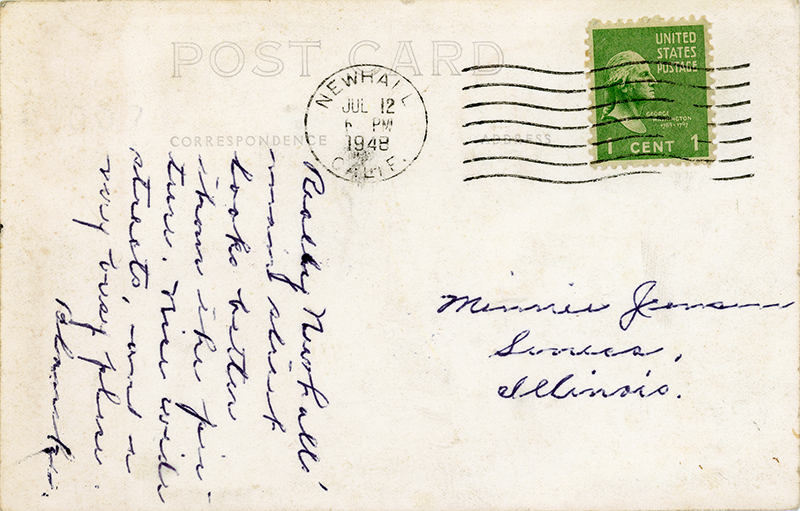 POST CARD
CORRESPONDENCE
ADDRESS
NEWHALL
JUL 12
6 PM
1948
CALIF.
UNITED
STATES
POSTAGE
GEORGE
WASHINGTON
1789-1797
1 CENT 1
Really Newhalls'
main street
looks better
than the pic-
ture. Nice wide
streets, and a
very busy place.
Minnie Jensen
Seneca,
Illinois.